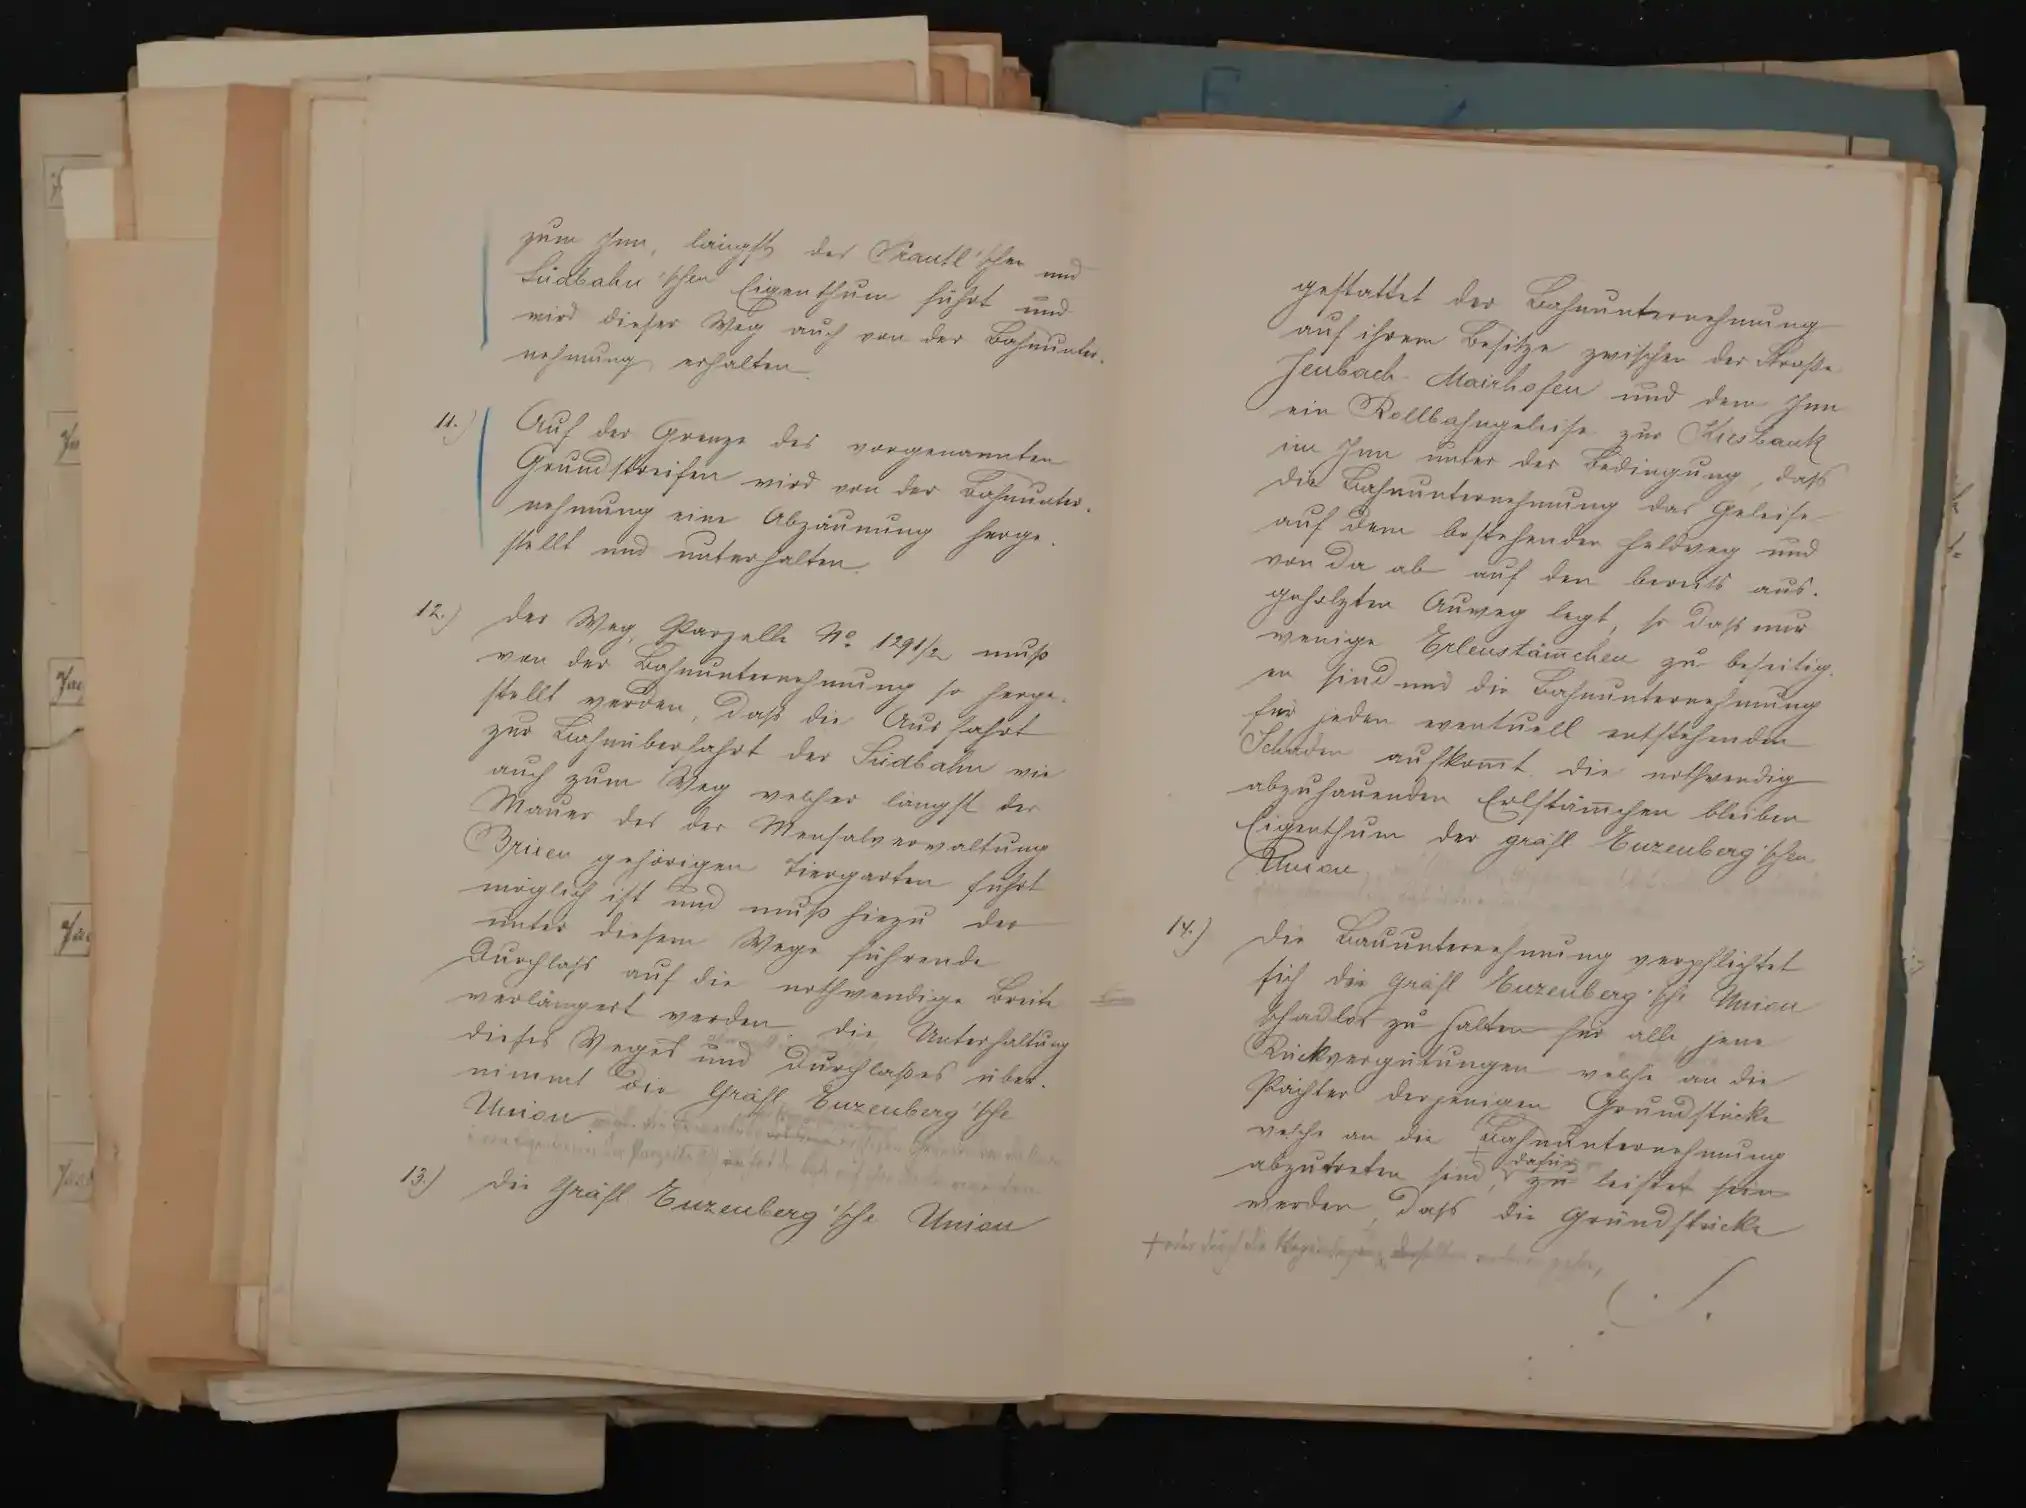 zum Inn, längst des Prantl'schen und
Südbahn'schen Eigenthum führt und
wird dieser Weg auch von der Bahnunter-
nehmung erhalten.
11.) Auf der Grenze des vorgenannten
Grundstreifen wird von der Bahnunter-
nehmung eine Abzäunung herge-
stellt und unterhalten.
12.) Der Weg, Parzelle No. 1291/2 muß
von der Bahnunternehmung so herge-
stellt werden, daß die Ausfahrt
zur Bahnüberfahrt der Südbahn wie
auch zum Weg welcher längst der
Mauer des der Mensalverwaltung
Brixen gehörigen Tiergarten führt
möglich ist und muß hiezu der
unter diesem Wege führende
Durchlaß auf die nothwendige Breite
verlängert werden. Die Unterhaltung
dieses Weges und Durchlaßes über-
nimmt die Gräfl Enzenberg'sche
Union
13.) Die Gräfl Enzenberg'sche Union
gestattet der Bahnunternehmung
auf ihrem Besitze zwischen der Straße
Jenbach-Mairhofen und dem Inn
ein Rollbahngeleise zur Kiesbank
im Inn unter der Bedingung, daß
die Bahnunternehmung das Geleise
auf dem bestehenden Feldweg und
von da ab auf den bereits aus-
geholzten Auweg legt, so daß nur
wenige Erlenstäm̄chen zu beseitig-
en sind und die Bahnunternehmung
für jeden eventuell entstehenden
Schaden aufkom̄t. Die nothwendig
abzuhauenden Erlstäm̄chen bleiben
Eigenthum der gräfl Enzenberg'schen
Union
14.) Die Bauunternehmung verpflichtet
sich die Gräfl Enzenberg'sche Union
schadlos zu halten für alle jene
Rückvergütungen welche an die
Pächter derjenigen Grundstücke
welche an die Bahnunternehmung
abzutreten sind, + dafür zu leisten sein
werden, daß die Grundstücke
+ oder durch die